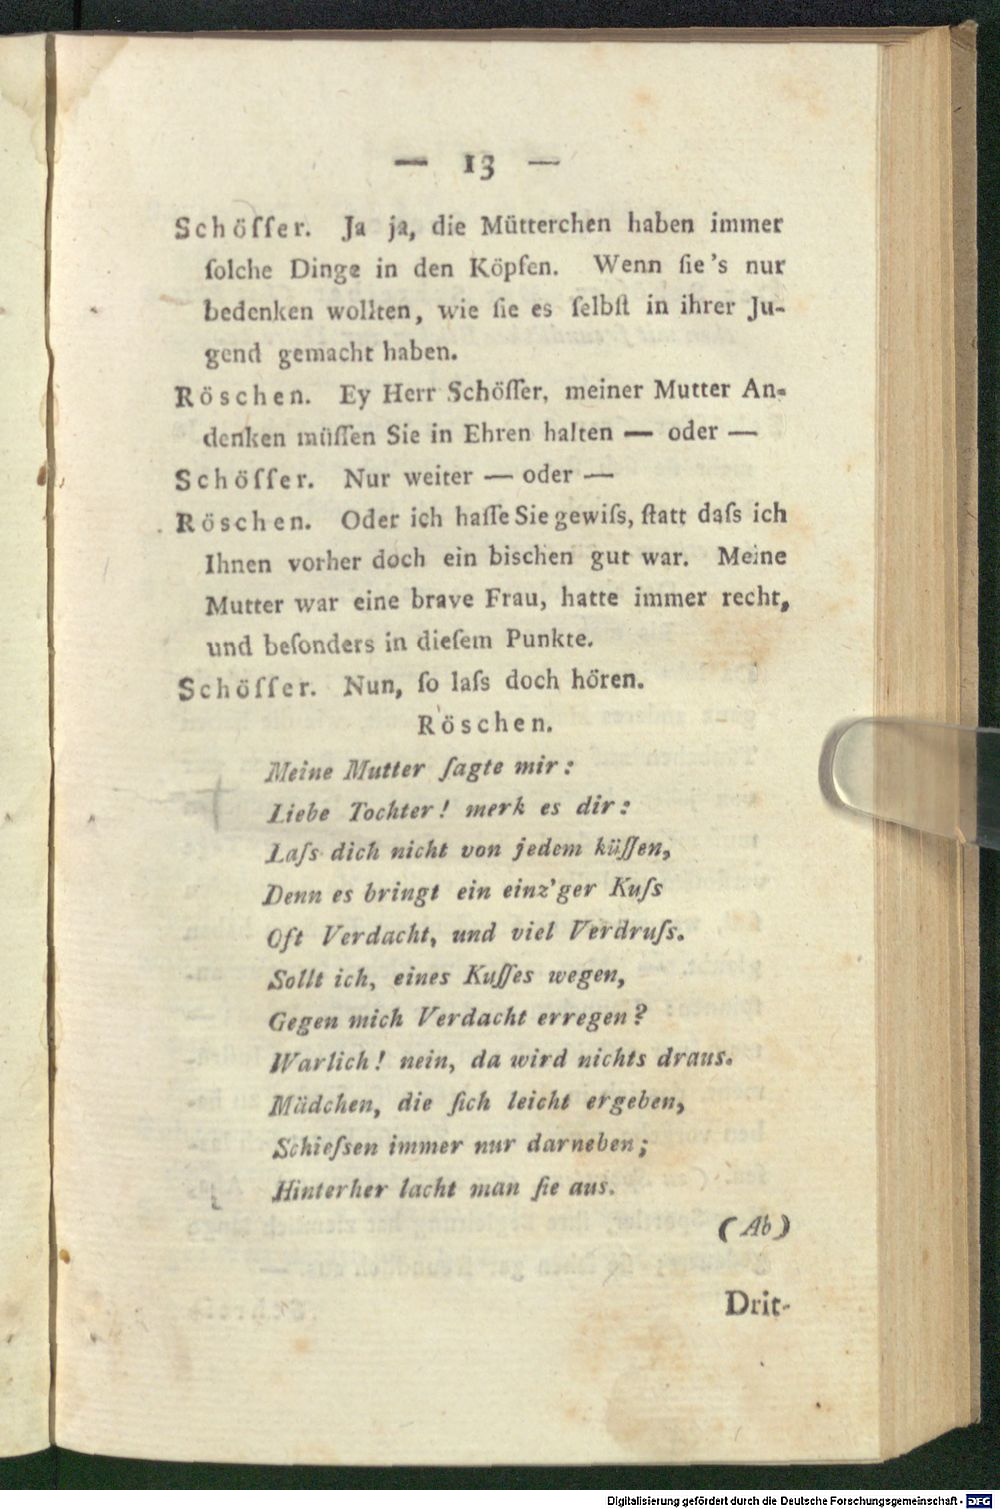 — 13 —
Schöſſer. Ja ja, die Mütterchen haben immer
ſolche Dinge in den Köpfen. Wenn ſie's nur
bedenken wollten, wie ſie es ſelbſt in ihrer Ju-
gend gemacht haben.
Röschen. Ey Herr Schöſſer, meiner Mutter An-
denken müſſen Sie in Ehren halten — oder —
Schöſſer. Nur weiter — oder —
Röschen. Oder ich haſſe Sie gewiſs, ſtatt daſs ich
Ihnen vorher doch ein bischen gut war. Meine
Mutter war eine brave Frau, hatte immer recht,
und beſonders in dieſem Punkte.
Schöſſer. Nun, ſo laſs doch hören.
Röschen.
Meine Mutter ſagte mir:
Liebe Tochter! merk es dir:
Laſs dich nicht von jedem küſſen,
Denn es bringt ein einz'ger Kuſs
Oft Verdacht, und viel Verdruſs.
Sollt ich, eines Kuſſes wegen,
Gegen mich Verdacht erregen?
Warlich! nein, da wird nichts draus.
Mädchen, die ſich leicht ergeben,
Schieſsen immer nur darneben;
Hinterher lacht man ſie aus.
(Ab)
Drit-
Digitalisierung gefördert durch die Deutsche Forschungsgemeinschaft - DFG